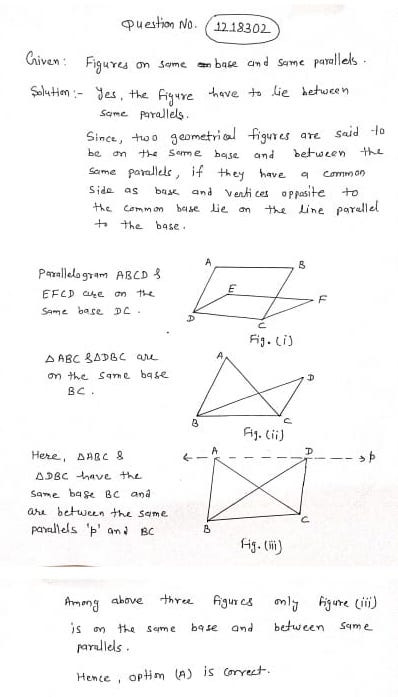 Question No. 1218302
Given: Figures on same base and same parallels.
Solution:- Yes, the figure have to lie between
same parallels.
Since, two geometrical figures are said to
be on the same base and between the
same parallels, if they have a common
side as base and vertices opposite to
the common base lie on the line parallel
to the base.
Parallelogram ABCD &
EFCD are on the
same base DC.
A
B
E
F
D
C
Fig. (i)
Δ ABC & ΔDBC are
on the same base
BC.
A
D
B
C
Fig. (ii)
Here, ΔABC &
ΔDBC have the
same base BC and
are between the same
parallels 'p' and BC
A
D
p
B
C
Fig. (iii)
Among above three figures only figure (iii)
is on the same base and between same
parallels.
Hence, option (A) is correct.